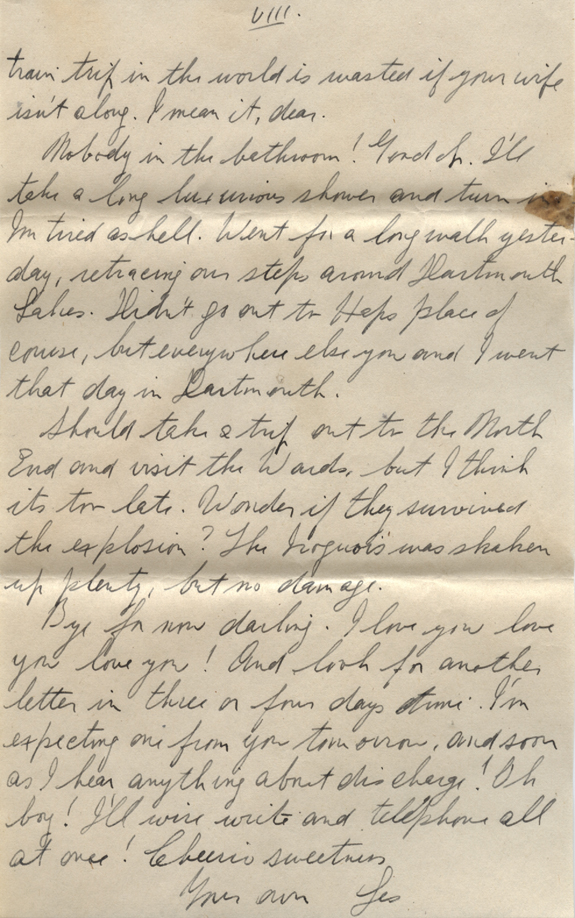 VIII.
train trip in the world is wasted if your wife
isn't along. I mean it, dear.
Nobody in the bathroom! Good oh. I'll
take a long luxurious shower and turn in.
I'm tired as hell. Went for a long walk yester-
day, retracing our steps around Dartmouth
Lakes. Didn't go out to Haps place of
course, but everywhere else you and I went
that day in Dartmouth.
Should take a trip out to the North
End and visit the Wards, but I think
its too late. Wonder if they survived
the explosion? The Iroquois was shaken
up plenty, but no damage.
Bye for now darling. I love you love
you love you! And look for another
letter in three or four days time. I'm
expecting one from you tomorrow, and soon
as I hear anything about discharge! Oh
boy! I'll wire write and telephone all
at once! Cheerio sweetness
Your own Les